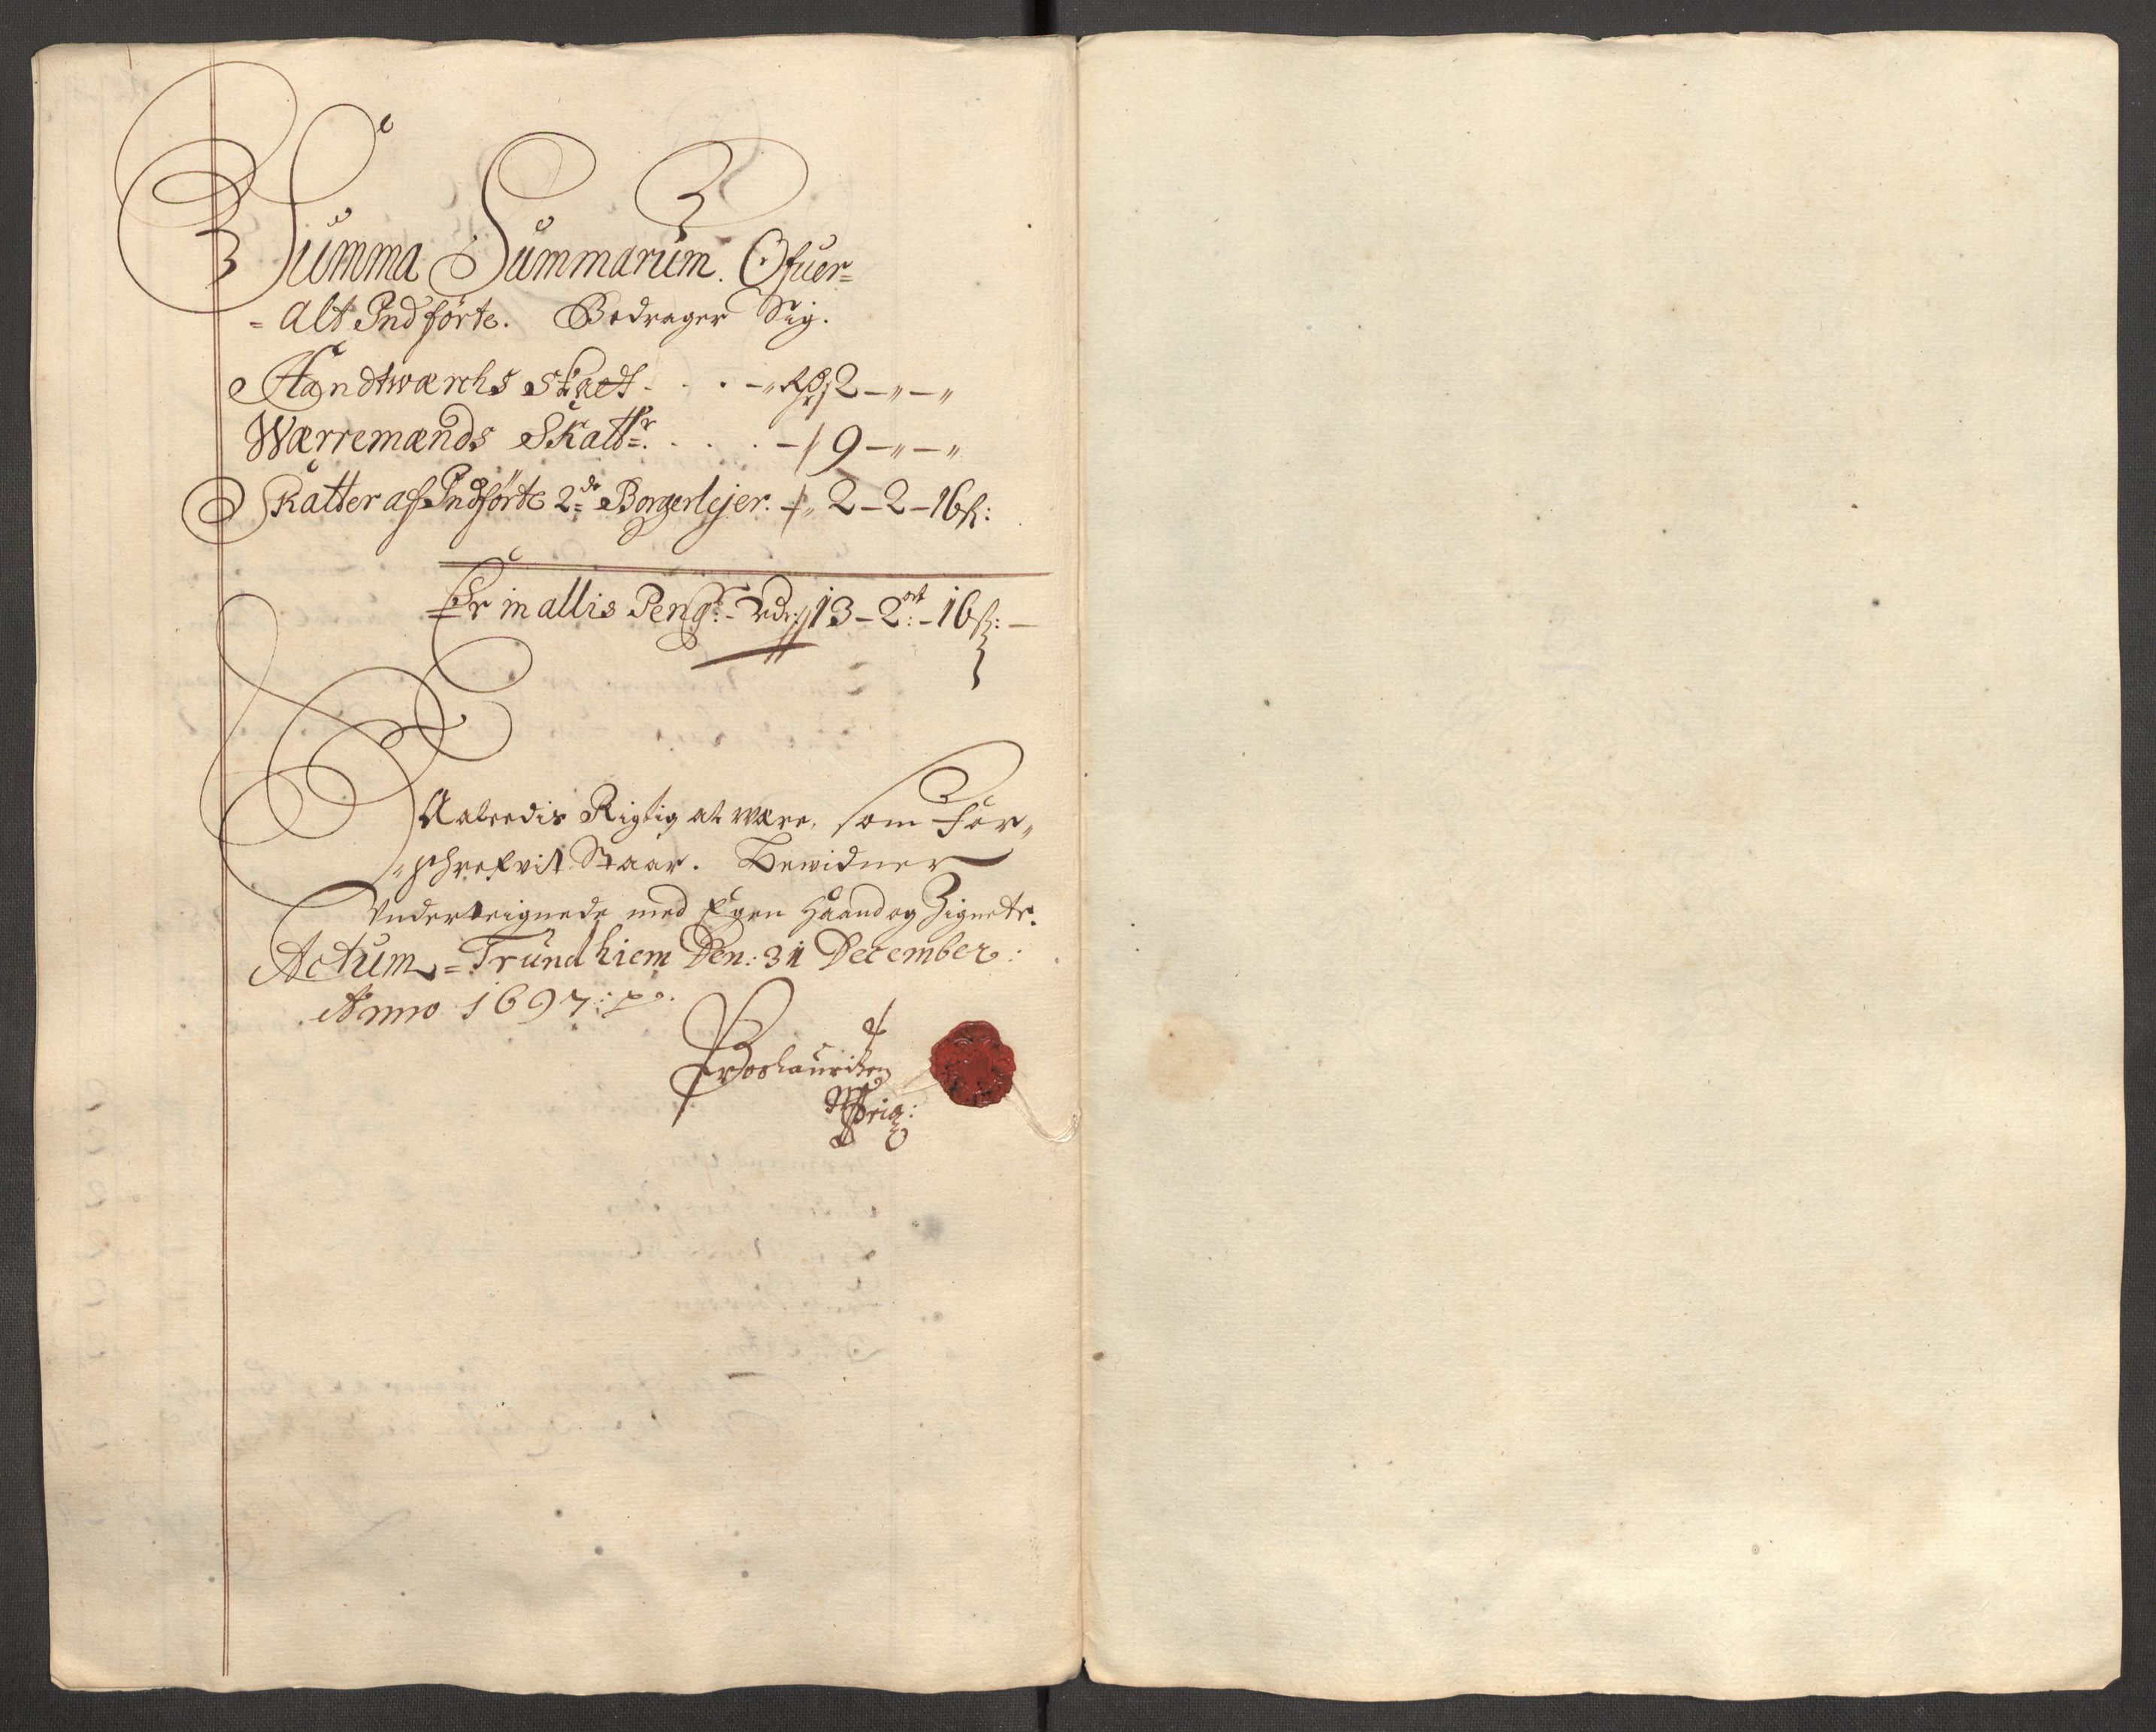 Summa Summarum. Ofuer=
= Alt Indførte. Bedrager Sig.
Handtwærchs Skatt - . . - " Rdr 2 - " - "
Wærremænds Skattr. . . . . - / 9 - " - "
Skatter af Indførte 2de Borgerlejer. - / " 2 - 2 - 16 ß:
Er in allis Peng: - Rdr: 13 - 2ort: - 16 ß: -
Saaledis Rigtig at være, som For„
„schrefvit Staar. Bewidner
Underteignede med Egen Haand og Zignete.
Actum = Trundhiem Den: 31 December:
Anno 1697: p.